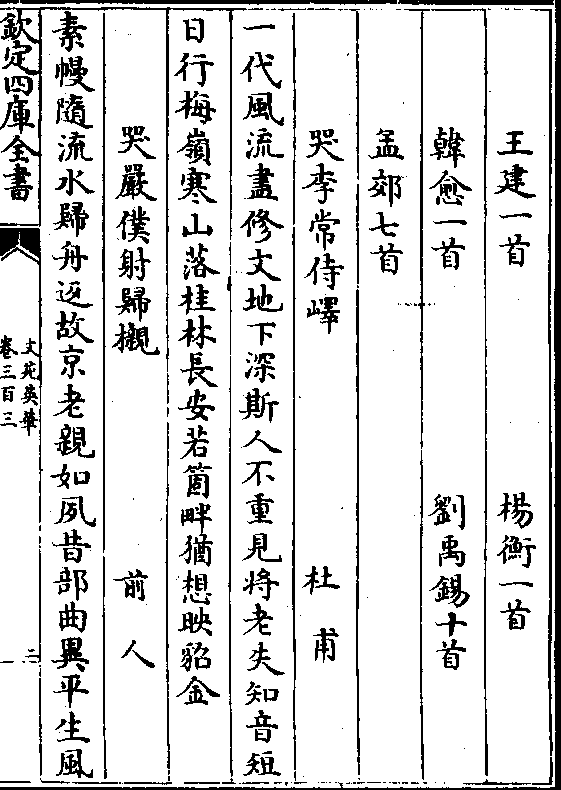 王建一首　楊衡一首
韓愈一首　劉禹錫十首
孟郊七首
哭李常侍嶧　杜甫
一代風流盡修文地下深斯人不重見將老失知音短
日行梅嶺寒山落桂林長安若箇畔猶想映貂金
哭嚴僕射歸櫬　前人
素幔隨流水歸舟返故京老親如夙昔部曲異平生風
欽定四庫全書　文苑英華　卷三百三　二